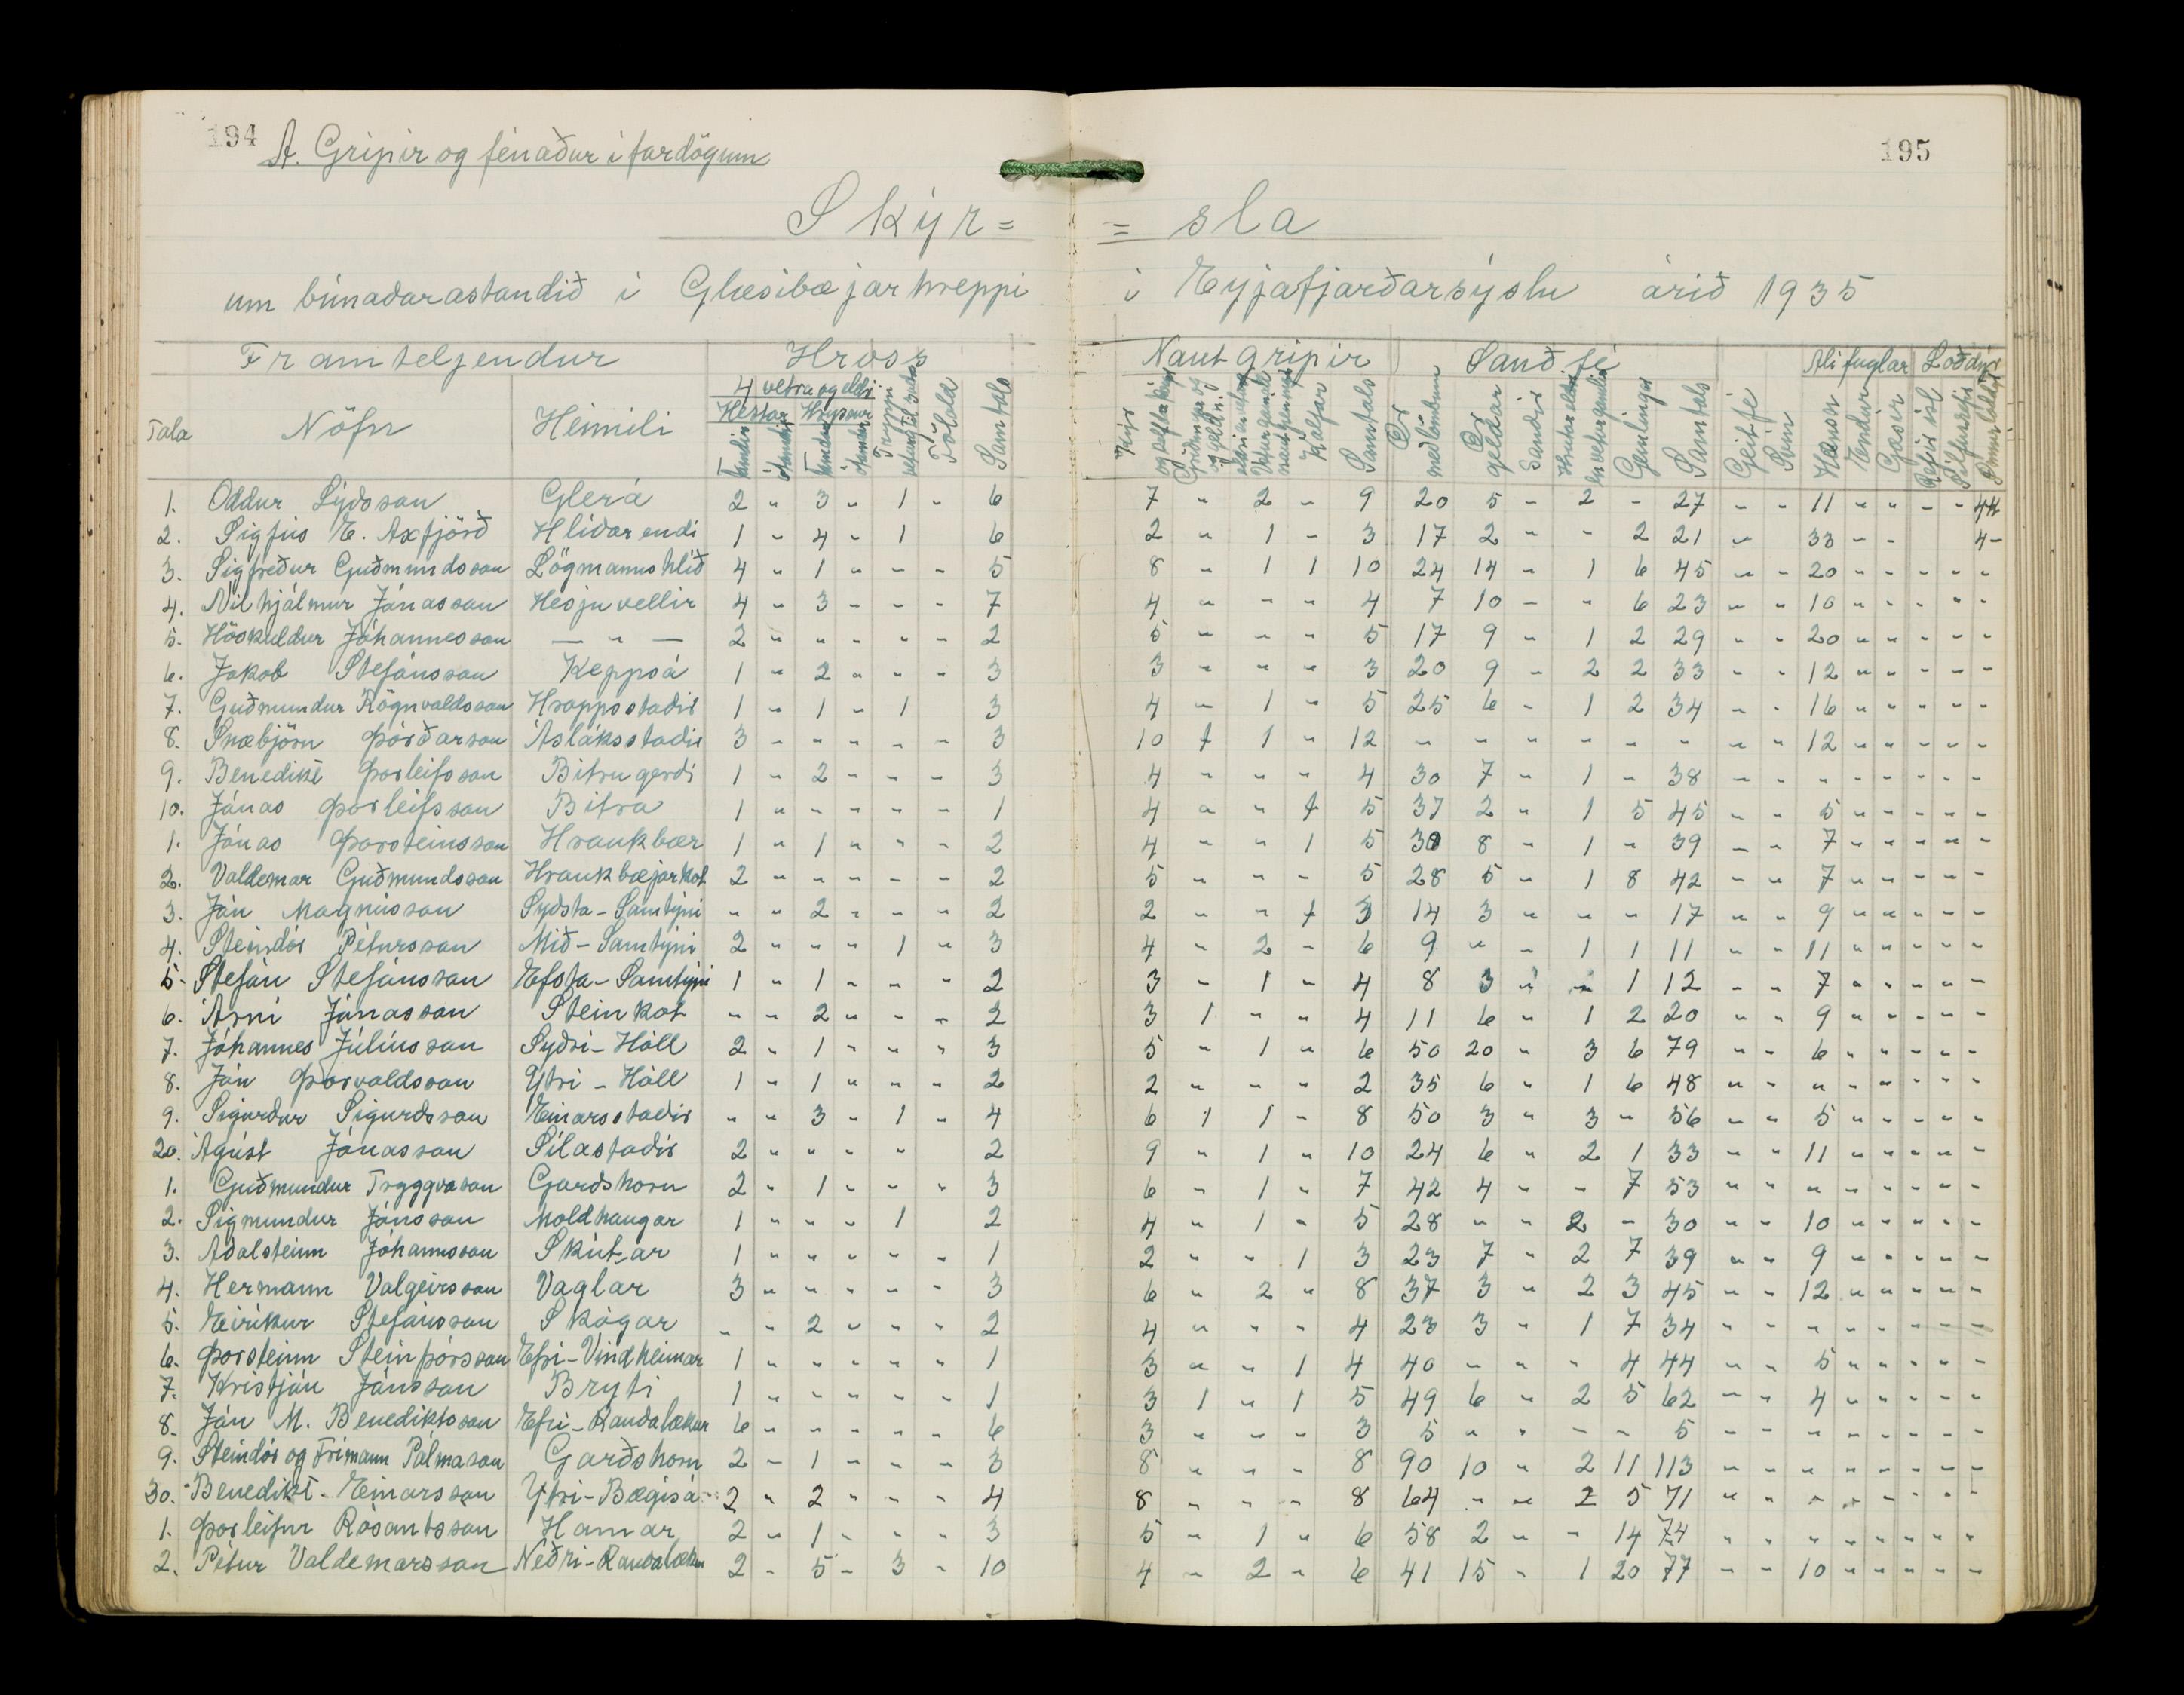 194
195
A. Gripir og fénaður í fardögum
Skýr= =sla
um búnaðarastandið í Glæsibæjarhreppi í Eyjafjarðarsýslu árið 1935
Framteljendur Hross Nautgripir Sauðfé Alifuglar Loðdýr
4 vetra og eldri
Hestar Hryssur
Tala Nöfn Heimili Tamdir ótamdir Tamdar ótamdar Tryppi Folöld Samtals Kýr og kelfdar kvígur Kálfar Samtals Ær með lömbum Ær geldar Sauðir Gemlingar Samtals Geitfé Svín Hænsn Endur Gæsir Refir ísl Silfurrefir
1. Oddur Lýdsson Glerá 2 " 3 " 1 " 6 7 " 2 " 9 20 5 " 2 - 27 - - 11 - - - - 4
2. Sigfús E. Axfjörð Hlíðarendi 1 " 4 " 1 6 2 " 1 " 3 17 2 " " 2 21 " 33 - - 4 -
3. Sigfreður Guðmundsson Lögmannshlíð 4 " 1 " " " 5 8 " 1 1 10 24 14 " 1 6 45 " " 20 " " " " "
4. Vilhjálmur Jónasson Hesjuvellir 4 " 3 " " " 7 4 " " " 4 7 10 " " 6 23 " " 10 " " " " "
5. Höskuldur Jóhannesson — " — 2 " " " " " 2 5 " " " 5 17 9 " 1 2 29 " " 20 " " " " "
6. Jakob Stefánsson Keppsá 1 " 2 " " " 3 3 " " " 3 20 9 " 2 2 33 " " 12 " " " " "
7. Guðmundur Rögnvaldsson Hrappsstadir 1 " 1 " 1 3 4 " 1 " 5 25 6 " 1 2 34 " " 16 " " " " "
8. Snæbjörn Þórðarson Ásláksstadir 3 " " " " " 3 10 1 1 " 12 " " " " " " " " 12 " " " " "
9. Benedikt Þorleifsson Bitrugerdi 1 " 2 " " " 3 4 " " " 4 30 7 " 1 " 38 " " " " " " " "
10. Jónas Þorleifsson Bitra 1 " " " " " 1 4 " " 1 5 37 2 " 1 5 45 " " 5 " " " " "
1. Jónas Þorsteinsson Hraukbær 1 " 1 " " " 2 4 " " 1 5 30 8 " 1 " 39 " " 7 " " " " "
2. Valdemar Guðmundsson Hraukbæjarkot 2 " " " " " 2 5 " " " 5 28 5 " 1 8 42 " " 7 " " " " "
3. Jón Magnússon Sydsta-Samtýni " " 2 " " " 2 2 " " 1 3 14 3 " " " 17 " " 9 " " " " "
4. Steindór Pétursson Mið-Samtýni 2 " " " 1 " 3 4 " 2 " 6 9 " " 1 1 11 " " 11 " " " " "
5. Stefán Stefánsson Efsta-Samtýni 1 " 1 " " " 2 3 " 1 " 4 8 3 " " 1 12 " " 7 " " " " "
6. Árni Jónasson Steinkot " " 2 " " " 2 3 1 " " 4 11 6 " 1 2 20 " " 9 " " " " "
7. Jóhannes Júlíusson Syðri-Hóll 2 " 1 " " " 3 5 " 1 " 6 50 20 " 3 6 79 " " 6 " " " " "
8. Jón Þorvaldsson Ytri-Hóll 1 " 1 " " " 2 2 " " " 2 35 6 " 1 6 48 " " " " " " " "
9. Sigurdur Sigurdsson Einarsstadir " " 3 " 1 " 4 6 1 1 " 8 50 3 " 3 " 56 " " 5 " " " " "
20. Ágúst Jónasson Sílastadir 2 " " " " 2 9 " 1 " 10 24 6 " 2 1 33 " " 11 " " " " "
1. Guðmundur Tryggvason Gardshorn 2 " 1 " " " 3 6 " 1 " 7 42 4 " " 7 53 " " " " " " " "
2. Sigmundur Jónsson Moldhaugar 1 " " " 1 2 4 " 1 " 5 28 " " 2 " 30 " " 10 " " " " "
3. Adalsteinn Jóhannsson Skútar 1 " " " " " 1 2 " " 1 3 23 7 " 2 7 39 " " 9 " " " " "
4. Hermann Valgeirsson Vaglar 3 " " " " " 3 6 " 2 " 8 37 3 " 2 3 45 " " 12 " " " " "
5. Eiríkur Stefánsson Skógar " " 2 " " " 2 4 " " " 4 23 3 " 1 7 34 " " " " " " " "
6. Þorsteinn Steinþórsson Efri-Vindheimar 1 " " " " " 1 3 " " 1 4 40 " " " 4 44 " " 5 " " " " "
7. Kristján Jónsson Bryti 1 " " " " " 1 3 1 " 1 5 49 6 " 2 5 62 " " 4 " " " " "
8. Jón M. Benediktsson Efri-Raudalækur 6 " " " " " 6 3 " " " 3 5 " " " " 5 " " " " " " " "
9. Steindór og Frímann Pálmason Garðshorn 2 " 1 " " " 3 8 " " " 8 90 10 " 2 11 113 " " " " " " " "
30. Benedikt Einarsson Ytri-Bægisá 2 " 2 " " " 4 8 " " " 8 64 " " 2 5 71 " " " " " " " "
1. Þorleifur Rósantsson Hamar 2 " 1 " " " 3 5 " 1 " 6 58 2 " " 14 74 " " " " " " " "
2. Pétur Valdemarsson Neðri-Raudalækur 2 " 5 " 3 " 10 4 " 2 " 6 41 15 " 1 20 77 " " 10 " " " " "